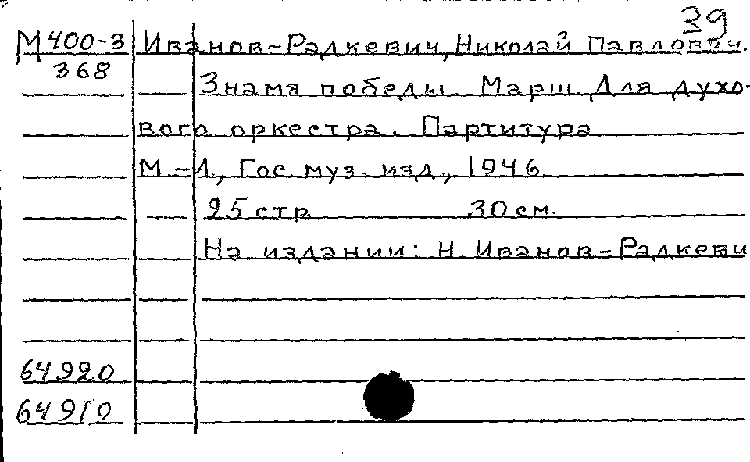 39
М 400-3 Иванов-Радкевич, Николай Павлович.
368
Знамя победы. Марш. Для духо-
вого оркестра. Партитура
М.-Л., Гос. муз. изд., 1946
25 стр 30 см.
На издании: Н. Иванов-Радкеви
64920
64910